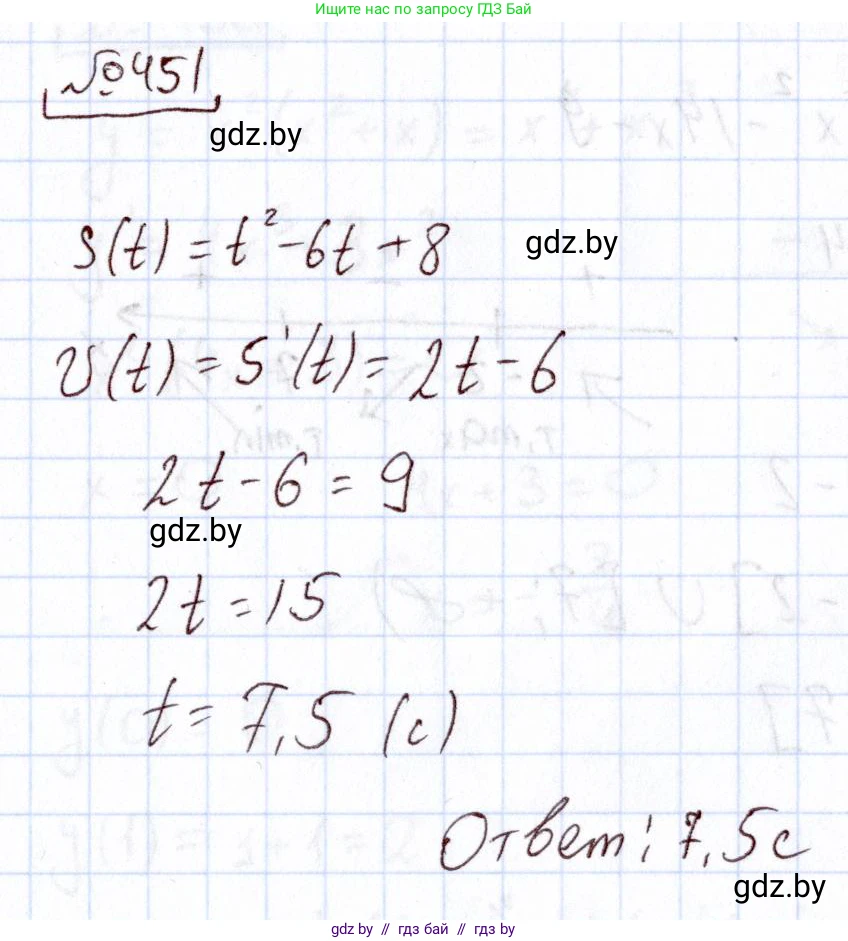 Ищите нас по запросу ГДЗ Бай
№451
gdz.by
S(t) = t² - 6t + 8
gdz.by
v(t) = S'(t) = 2t - 6
2t - 6 = 9
gdz.by
2t = 15
t = 7,5 (с)
Ответ: 7,5с
gdz.by
gdz.by // гдз бай // гдз by